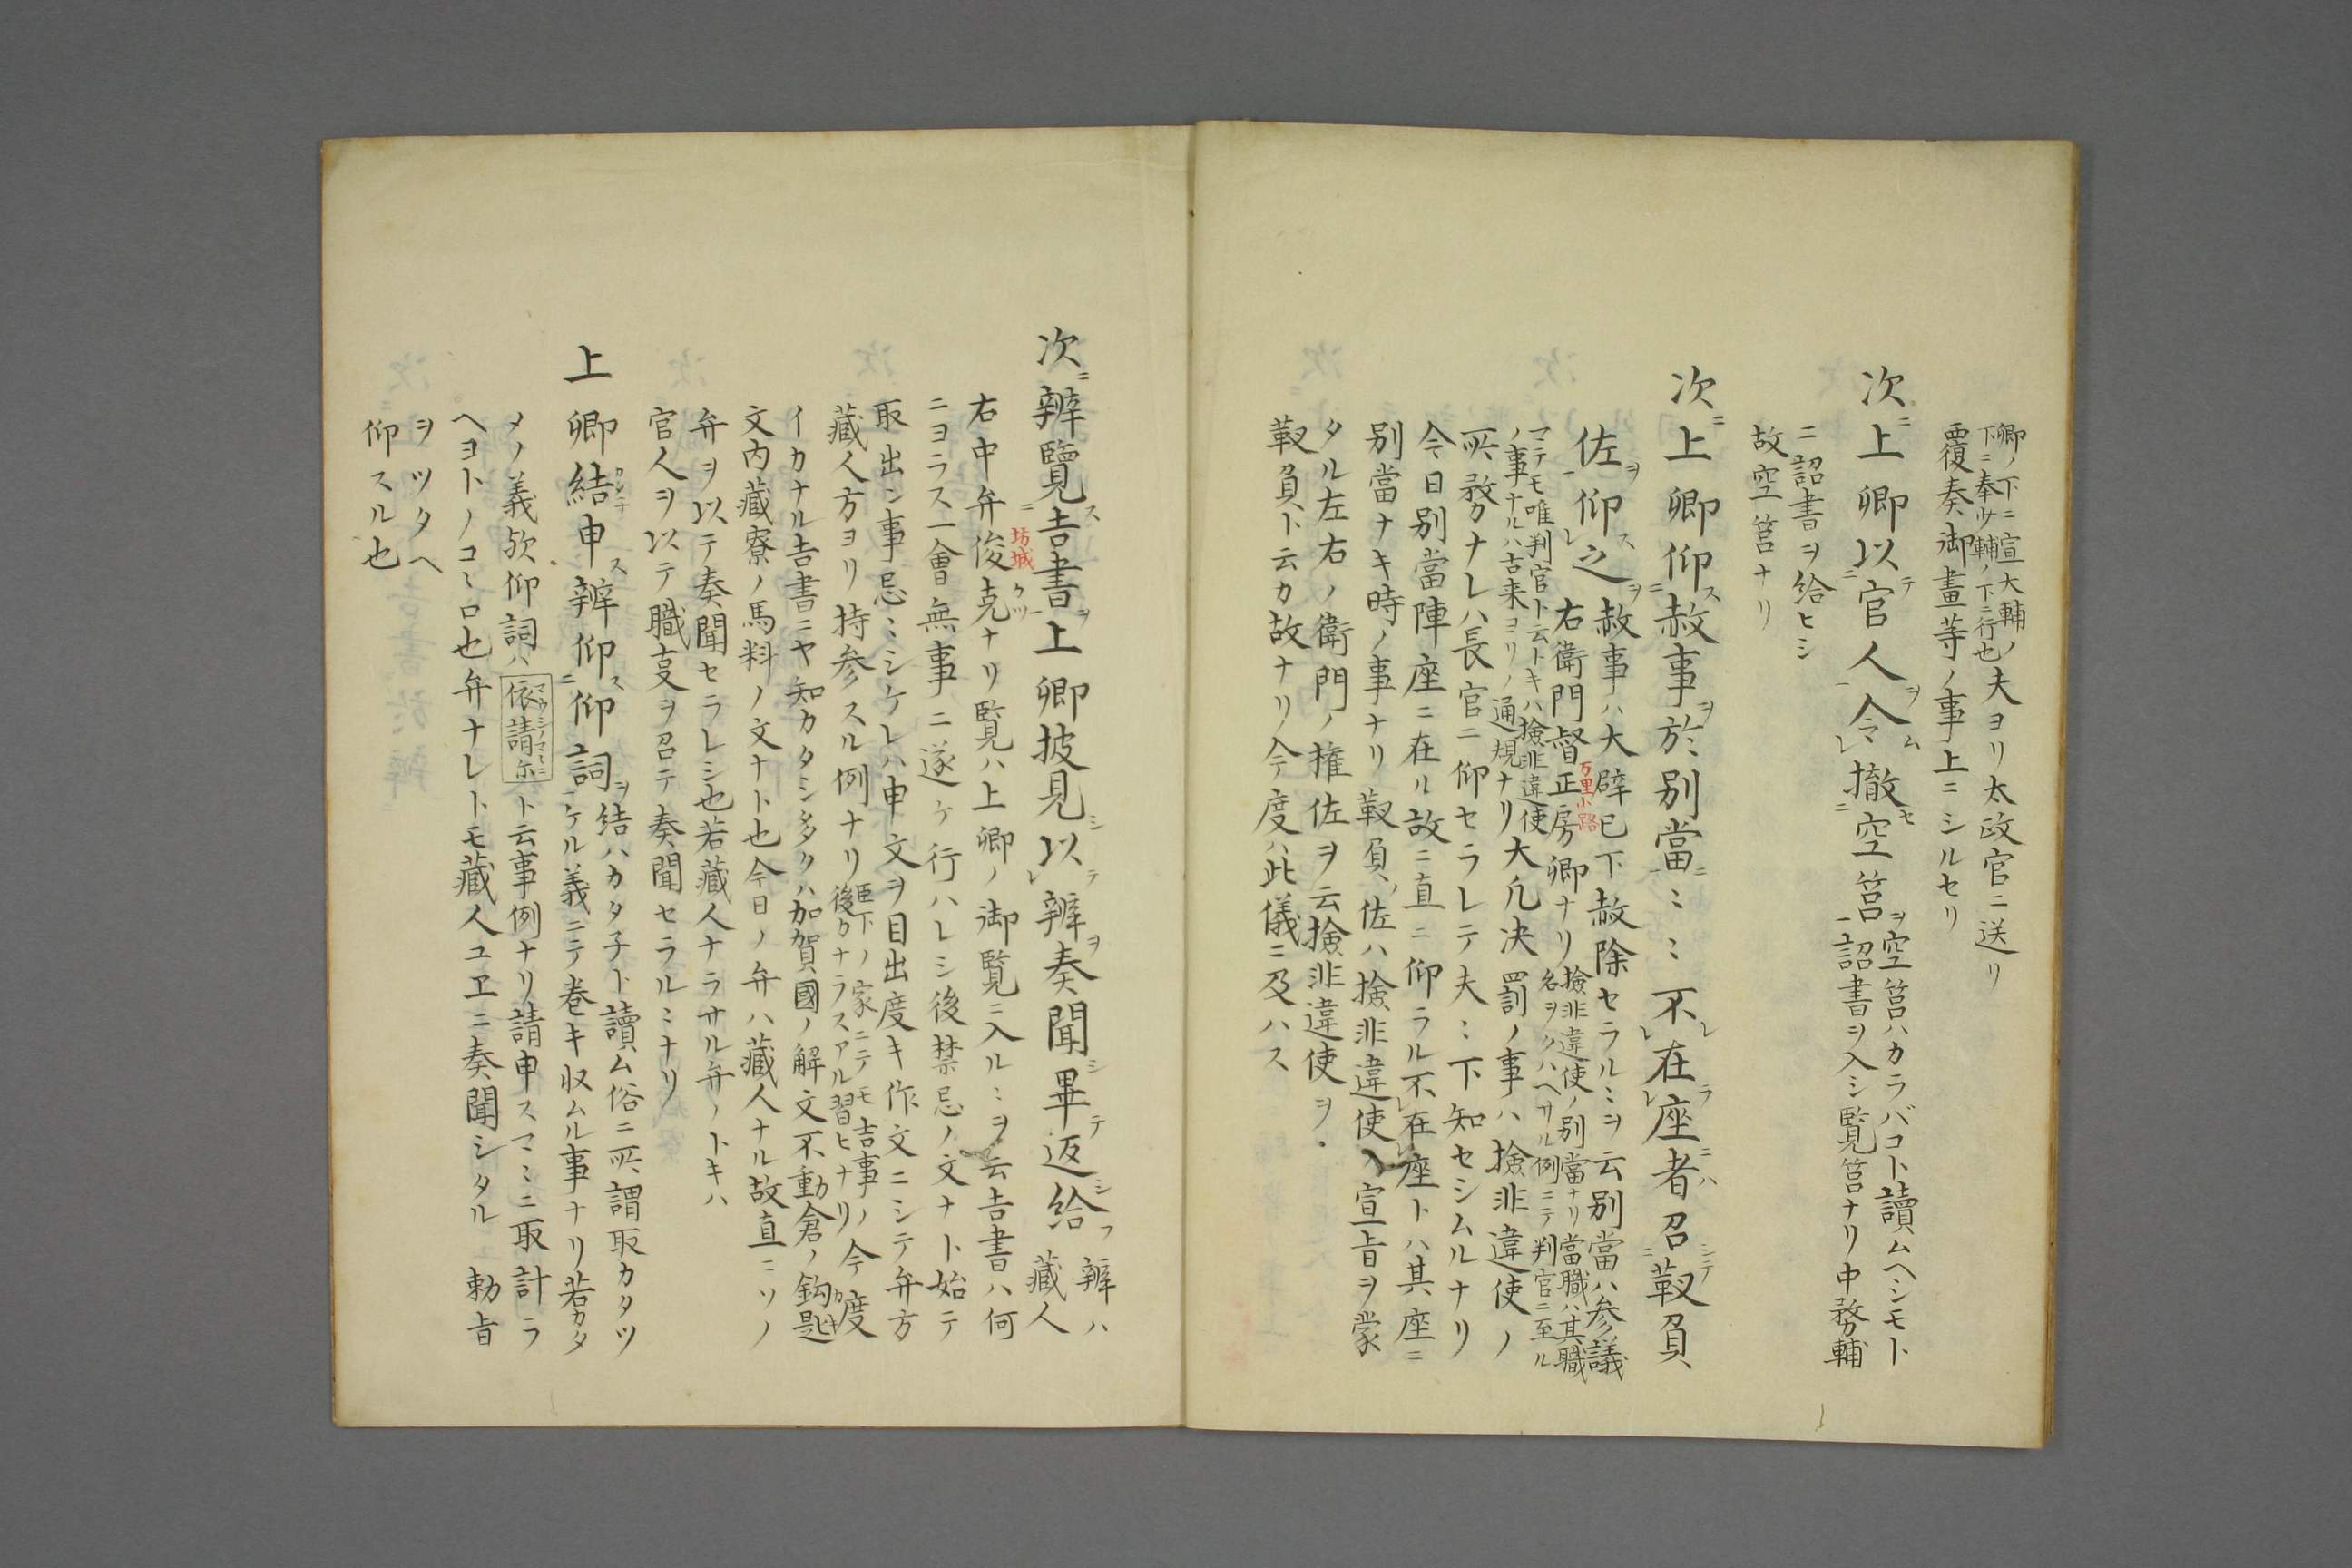 卿ノ下ニ宣大輔ノ
下ニ奉少輔ノ下ニ行也
夫ヨリ太政官ニ送リ
覆奏御畫等ノ事上ニシルセリ
次ニ上卿以テ官人ヲ令ム撤セ空筥ヲ
空筥ハカラバコト讀ムヘシモト
詔書ヲ入シ覽筥ナリ中務輔
ニ詔書ヲ給ヒシ
故空筥ナリ
次ニ上卿仰ス赦事ヲ於別當ニ〻〻不レ在ラ座者ニハ召シテ靫負
佐ヲ仰ス之ヲ
赦事ハ大辟已下赦除セラルヽヲ云別當ハ参議
右衛門督正房卿ナリ
万里小路
檢非違使ノ別當ナリ當職ハ其職
名ヲノハヘサル例ニテ判官ニ至ル
マテモ唯判官ト云トキハ檢非違使
ノ事ナルハ古来ヨリノ通規ナリ
大凡决罰ノ事ハ檢非違使ノ
所務ナレハ長官ニ仰セラレテ夫〻下知セシムルナリ
今日別當陣座ニ在ル故ニ直ニ仰ラル不レ在レ座トハ其座ニ
別當ナキ時ノ事ナリ靫負佐ハ檢非違使ノ宣旨ヲ蒙
タル左右ノ衛門ノ権佐ヲ云檢非違使ヲ
靫負ト云カ故ナリ今度ハ此儀ニ及ハス
次ニ辨覽ス吉書ヲ上卿披見シ以テ辨ヲ奏聞シ畢テ返シ給フ
辨ハ
藏人
右中弁俊克ナリ覧ハ上卿ノ御覧ニ入ルヽヲ云吉書ハ何
坊城
ニヨラス一會無事ニ遂ケ行ハレシ後禁忌ノ文ナト始テ
取出ン事忌〻シケレハ申文ヲ目出度キ作文ニシテ弁方
藏人方ヨリ持参スル例ナリ
臣下ノ家ニテモ吉事ノ
後カナラスアル習ヒナリ
今度
イカナル吉書ニヤ知カタシ多クハ加賀國ノ解文不動倉ノ鈎匙
文内藏寮ノ馬料ノ文ナト也今日ノ弁ハ藏人ナル故直ニソノ
弁ヲ以テ奏聞セラレシ也若藏人ナラサル弁ノトキハ
官人ヲ以テ職事ヲ召テ奏聞セラルヽナリ
上卿結申ス辨仰ス仰詞ヲ
結ハカタ子ト讀ム俗ニ所謂取カタツ
ケル義ニテ巻キ収ムル事ナリ若カタ
メノ義欤仰詞ハ依請尓ト云事例ナリ請申スマヽニ取計ラ
ヘヨトノコヽロ也弁ナレトモ藏人ユヱニ奏聞シタル勅旨
ヲツタヘ
仰スル也